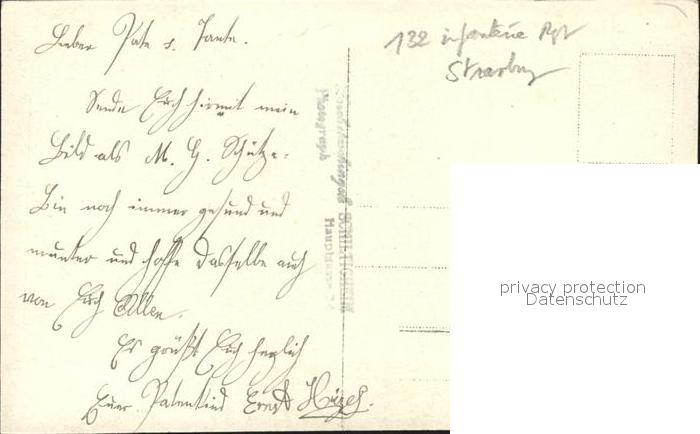 Lieber Pate u. Tante.
Sende Euch hiermit mein
Bild als M. G. Schütze.
Bin noch immer gesund und
munter und hoffe dasselbe auch
von Euch Allen.
Es grüßt Euch herzlich
Euer Patenkind Ernst
132 infanterie Rgt
Strasburg
Photograph
SCHILTIGHEIM
Hauptstr.
privacy protection
Datenschutz